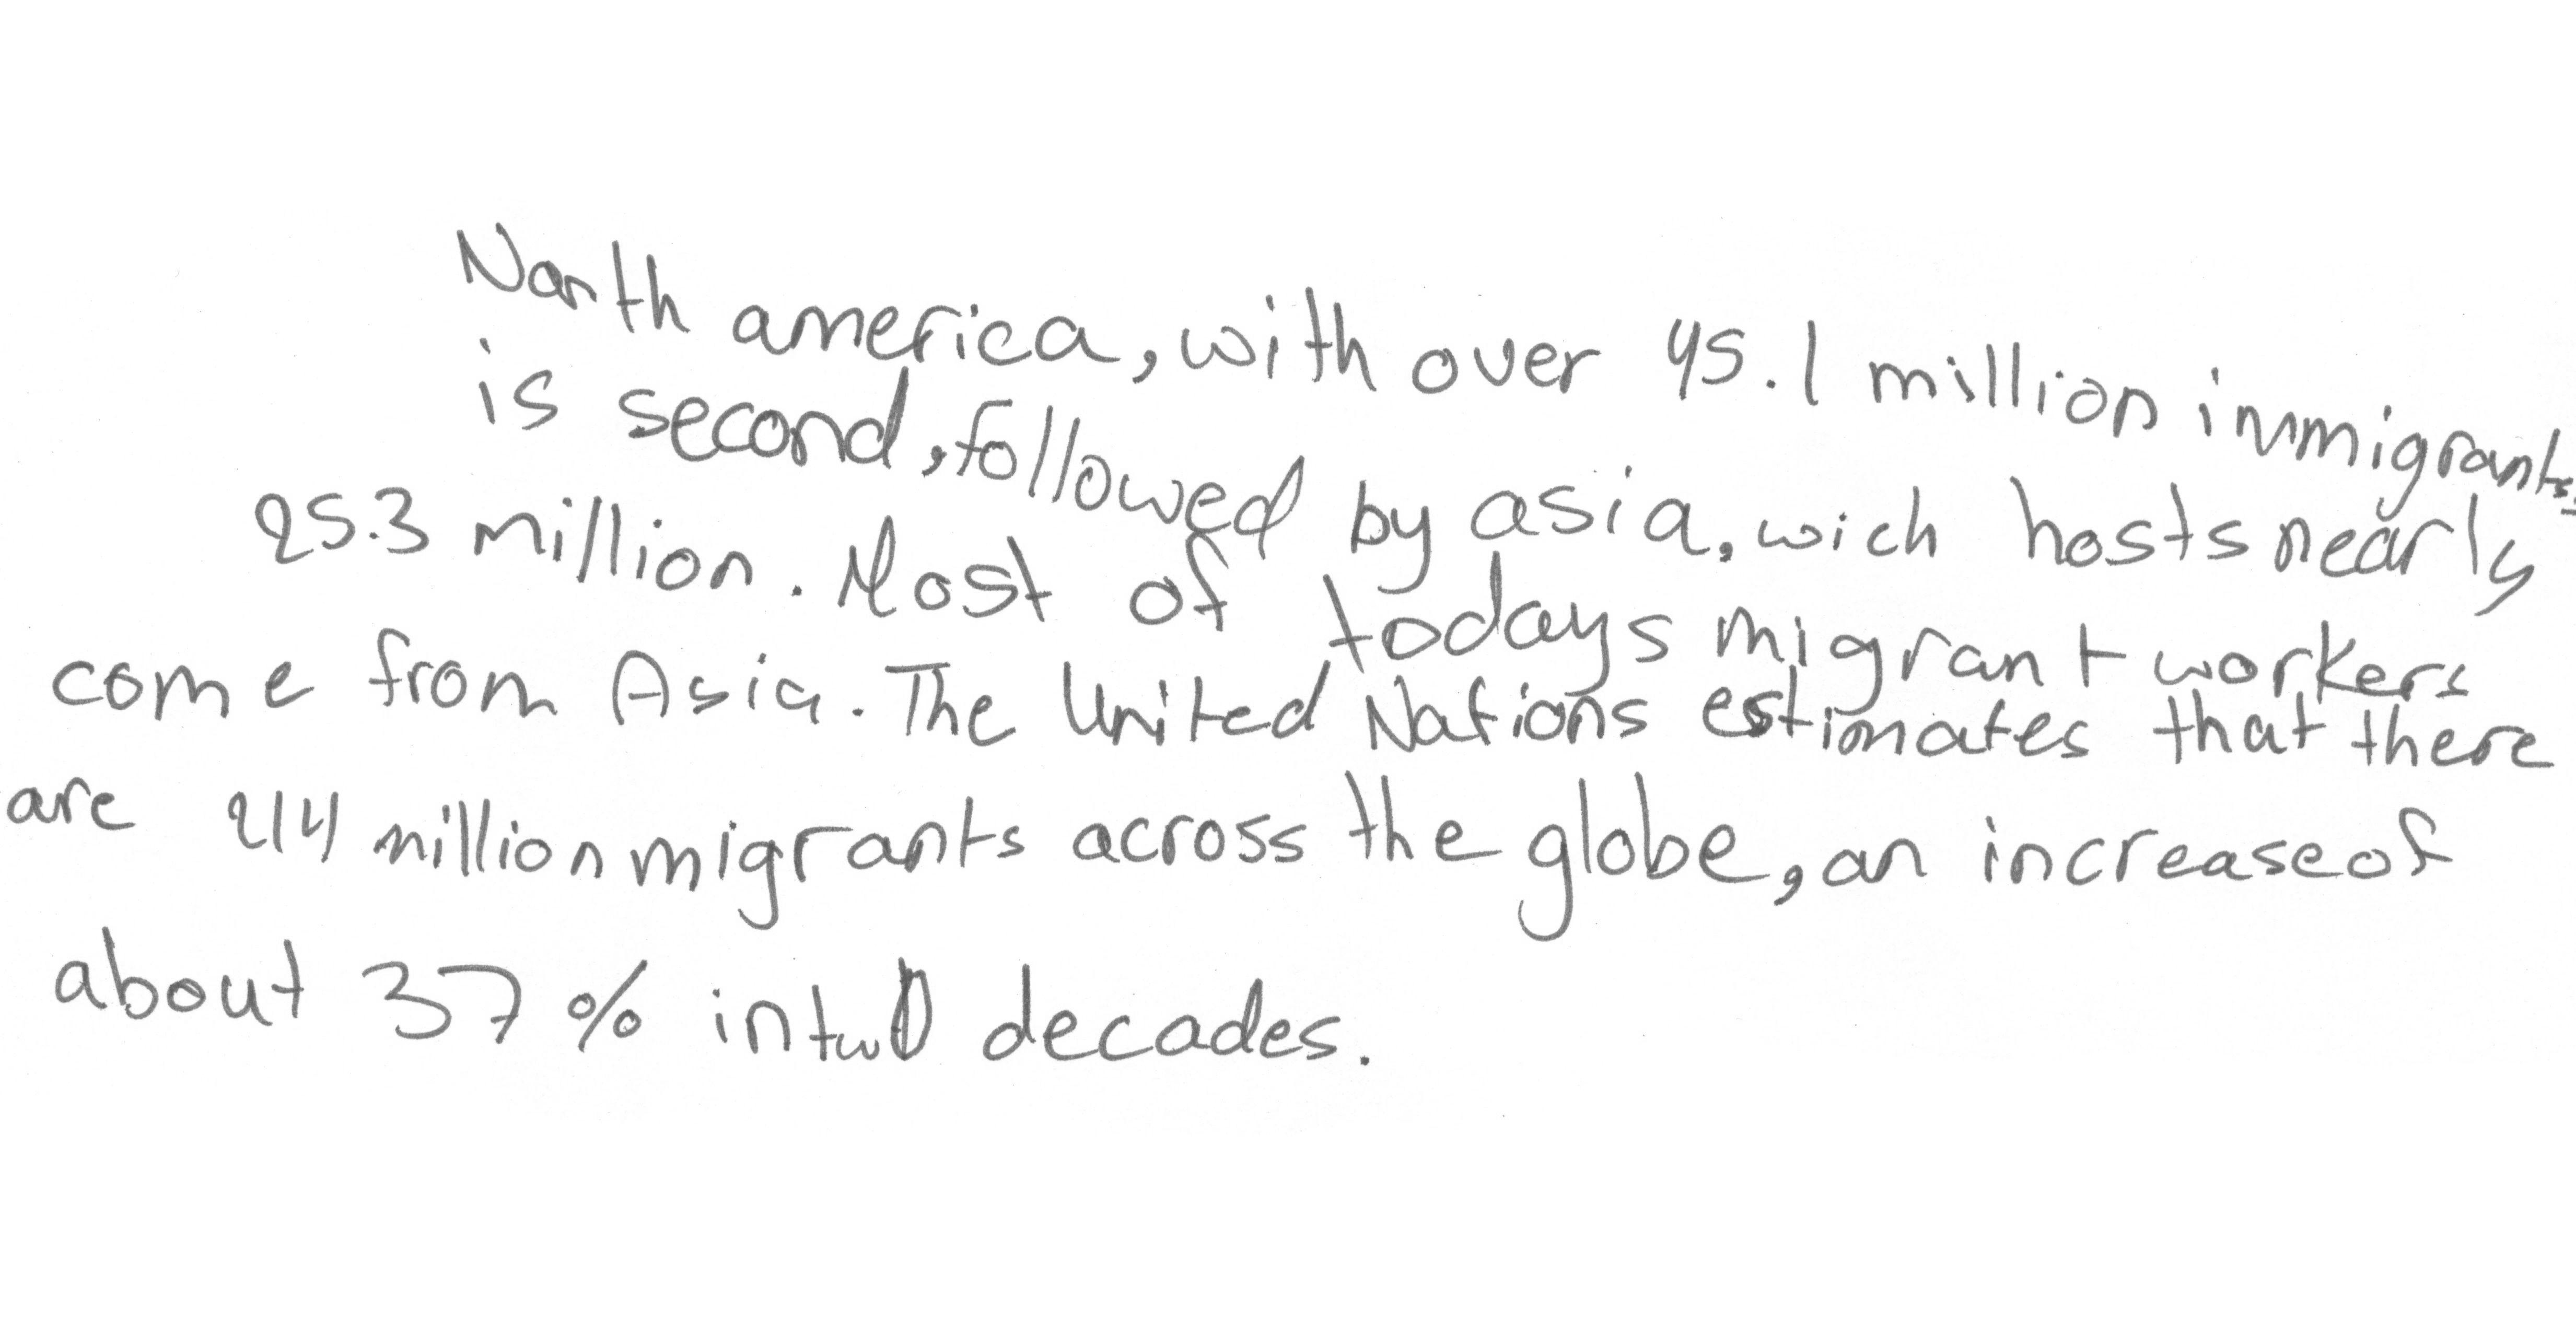 North america, with over 45.1 million inmigrants,
is second, followed by asia, wich hosts nearly
25.3 million. Most of todays migrant workers
come from Asia. The United Nations estimates that there
are 214 million migrants across the globe, an increase of
about 37% in two decades.